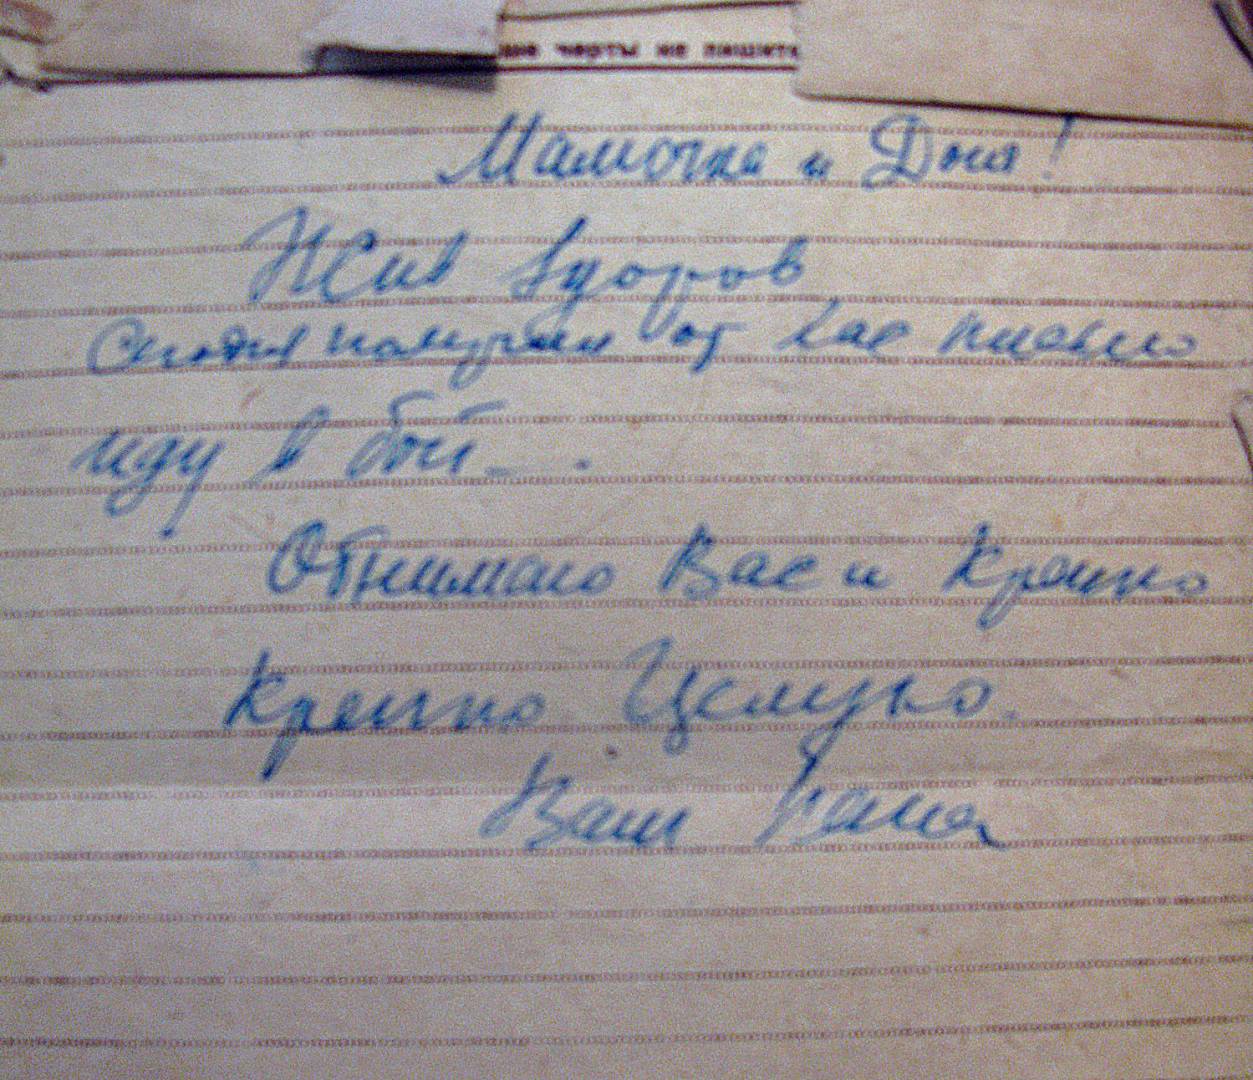 ше черты не пишите
Мамочка и Доня!
Жив здоров
Сегодня получил от Вас письмо
иду в бой - .
Обнимаю Вас и Крепко
Крепко Целую.
Ваш папа